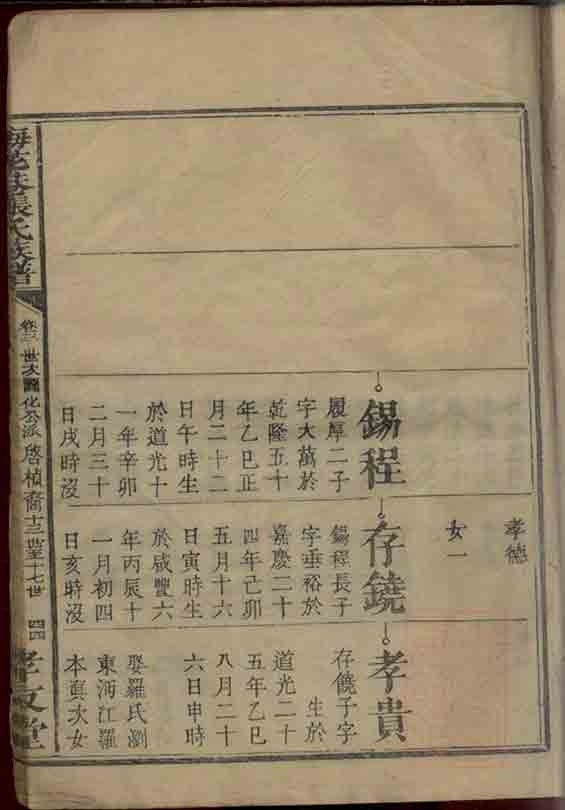 孝德
女一
錫程
履厚二子
字大萬於
乾隆五十
年乙巳正
月二十二
日午時生
於道光十
一年辛卯
二月三十
日戌時沒
存鐃
錫程長子
字垂裕於
嘉慶二十
四年己卯
五月十六
日寅時生
於咸豐六
年丙辰十
一月初四
日亥時沒
孝貴
存饒子字
生於
道光二十
五年乙巳
八月二十
六日申時
娶羅氏瀏
東沔江羅
本真次女
張氏族譜
世次 化公派 啓楨裔 十三至十七世
四四
孝友堂